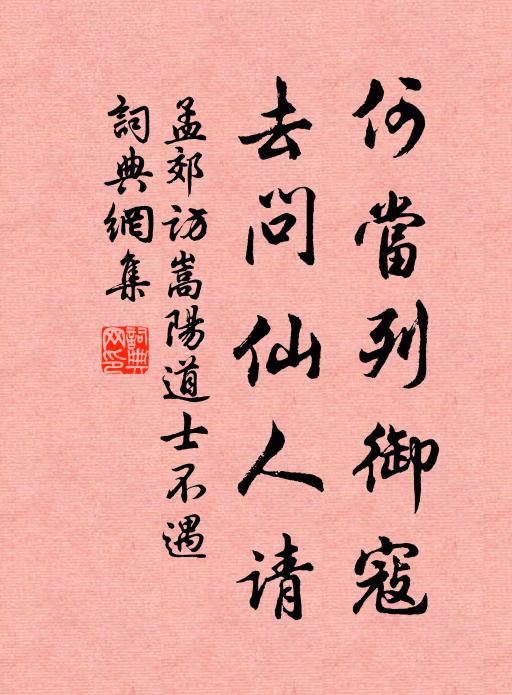 何當列御寇
去問仙人请
孟郊访嵩陽道士不遇
詞典網集
詞典网印